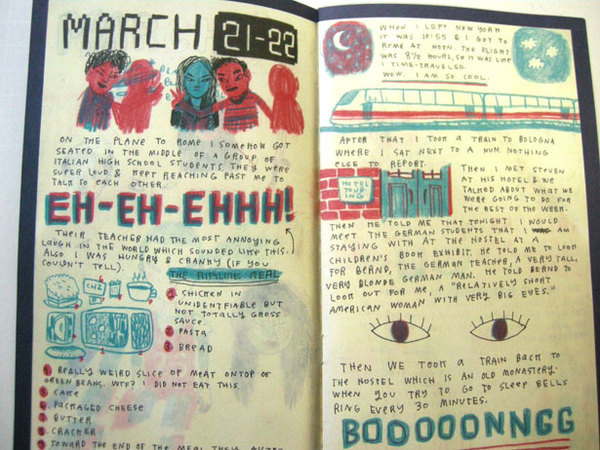 MARCH 21-22
ON THE PLANE TO ROME I SOMEHOW GOT
SEATED IN THE MIDDLE OF A GROUP OF
ITALIAN HIGH SCHOOL STUDENTS. THEY WERE
SUPER LOUD & KEPT REACHING PAST ME TO
TALK TO EACH OTHER.
EH-EH-EHHH!
THEIR TEACHER HAD THE MOST ANNOYING
LAUGH IN THE WORLD WHICH SOUNDED LIKE THIS.
ALSO I WAS HUNGRY & CRANKY (IF YOU
COULDN'T TELL).
THE AIRLINE MEAL
1. CHICKEN IN
UNIDENTFIABLE BUT
NOT TOTALLY GROSS
SAUCE.
2. PASTA
3. BREAD
4. REALLY WEIRD SLICE OF MEAT ONTOP OF
GREEN BEANS. WTF? I DID NOT EAT THIS.
5. CAKE
6. PACKAGED CHEESE
7. BUTTER
8. CRACKER
9. TOWARD THE END OF THE MEAL THEY
WHEN I LEFT NEW YORK
IT WAS 10:55 & I GOT TO
ROME AT NOON. THE FLIGHT
WAS 8½ HOURS, SO IT WAS LIKE
I TIME-TRAVELED.
WOW. I AM SO COOL.
AFTER THAT I TOOK A TRAIN TO BOLOGNA
WHERE I SAT NEXT TO A NUN. NOTHING
ELSE TO REPORT.
THEN I MET STEVEN
AT HIS HOTEL & WE
TALKED ABOUT WHAT WE
WERE GOING TO DO FOR
THE REST OF THE WEEK.
THEN HE TOLD ME THAT TONIGHT I WOULD
MEET THE GERMAN STUDENTS THAT I AM
STAYING WITH AT THE HOSTEL AT A
CHILDREN'S BOOK EXHIBIT. HE TOLD ME TO LOOK
FOR BERND, THE GERMAN TEACHER, A VERY TALL,
VERY BLONDE GERMAN MAN. HE TOLD BERND TO
LOOK OUT FOR ME, A "RELATIVELY SHORT
AMERICAN WOMAN WITH VERY BIG EYES."
THEN WE TOOK A TRAIN BACK TO
THE HOSTEL WHICH IS AN OLD MONASTERY.
WHEN YOU TRY TO GO TO SLEEP BELLS
RING EVERY 30 MINUTES.
BOOOOONNGG